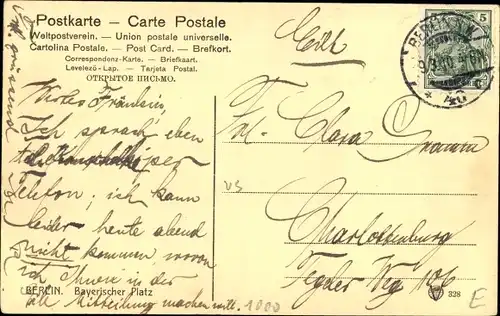 Postkarte – Carte Postale
Weltpostverein. – Union postale universelle.
Cartolina Postale. – Post Card. – Brefkort.
Correspondenz-Karte. – Briefkaart.
Levelező-Lap. – Tarjeta Postal.
ОТКРЫТОЕ ПИСЬМО.
BERLIN
5
Frl. Clara Gramm
Charlottenburg
Tegeler Weg 106
Fräulein,
Ich sprach eben
per
Telefon; ich kann
leider heute abend
nicht kommen wovon
ich Ihnen in der
Mitteilung machen will.
BERLIN. Bayerischer Platz
1000
328
E